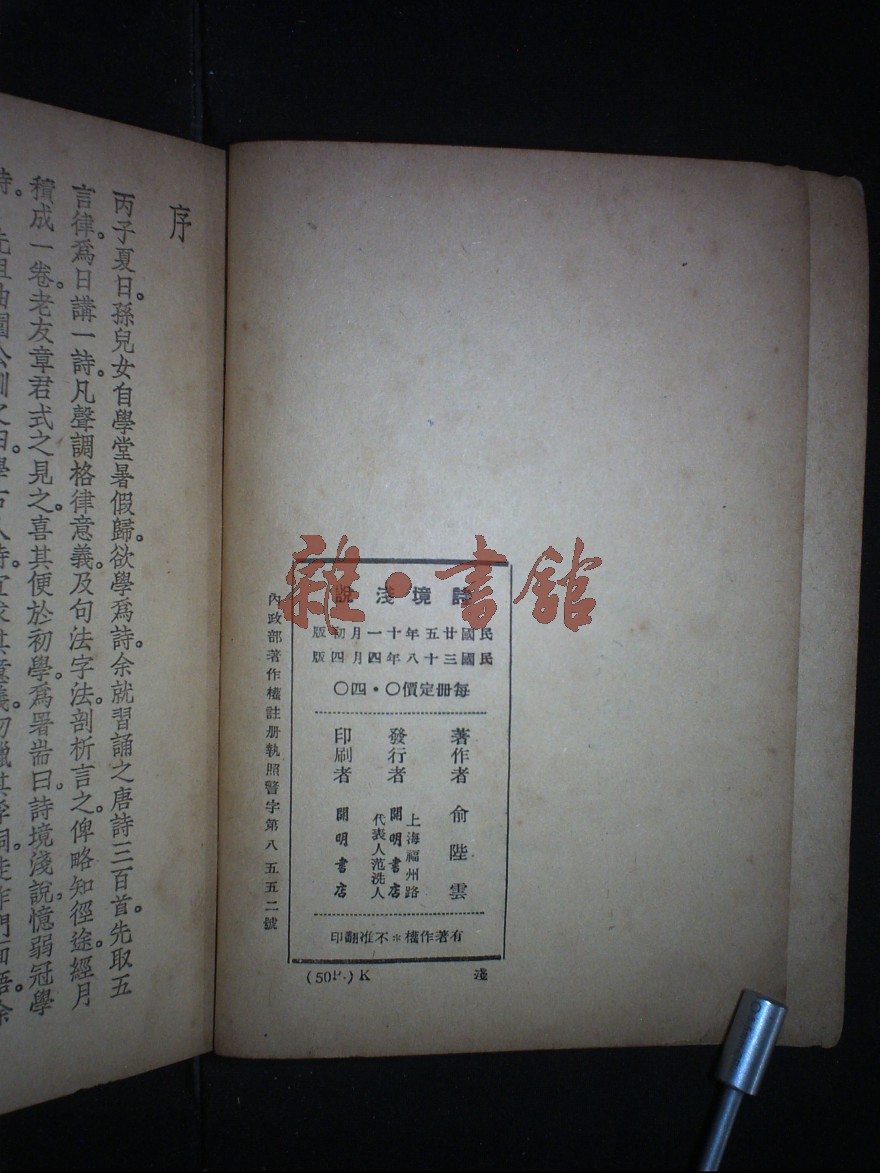 序
丙子夏日。孫兒女自學堂暑假歸。欲學爲詩。余就習誦之唐詩三百首。先取五
言律。爲日講一詩。凡聲調格律意義。及句法字法。剖析言之。俾略知徑途。經月
積成一卷。老友章君式之見之。喜其便於初學。爲署耑曰。詩境淺說。憶弱冠學
詩。先祖曲園公訓之曰。學古人詩。宜求其意義。勿獵其浮詞。徒作門面語。余
雜·書館
詩境淺說
民國廿五年十一月初版
民國三十八年四月四版
每冊定價〇·四〇
著作者 俞陛雲
發行者 上海福州路
開明書店
代表人范洗人
印刷者 開明書店
有著作權＊不准翻印
內政部著作權註册執照警字第八五五二號
(50P.) K 淺